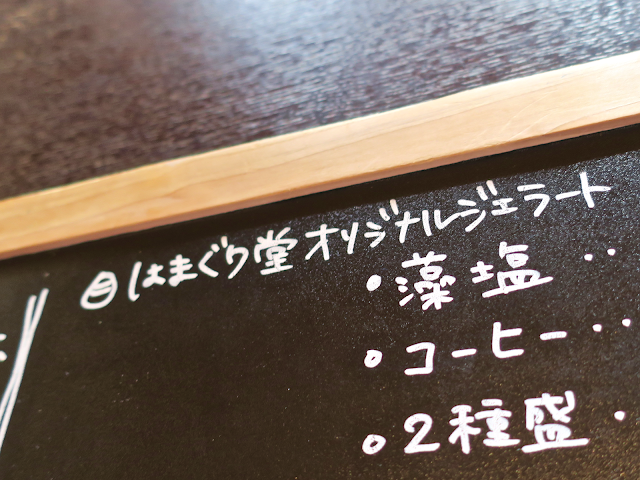 はまぐり堂オリジナルジェラート
・藻塩‥
・コーヒー‥
・2種盛・